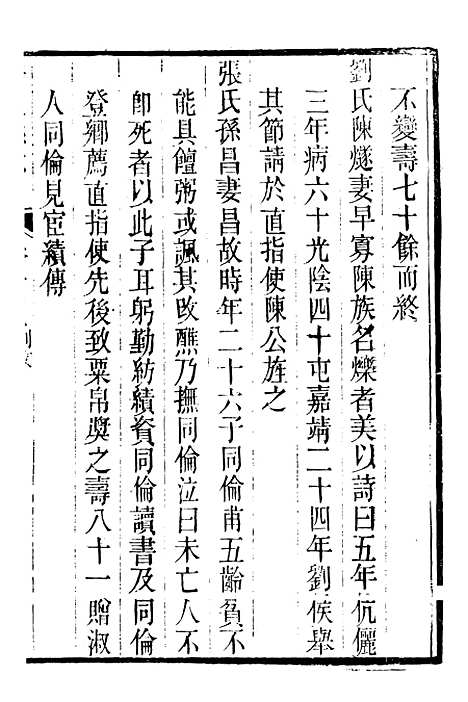 不變壽七十餘而終
劉氏陳燧妻早寡陳族名爍者美以詩曰五年伉儷
三年病六十光陰四十屯嘉靖二十四年劉侯舉
其節請於直指使陳公旌之
張氏孫昌妻昌故時年二十六子同倫甫五齡貧不
能具饘粥或諷其改醮乃撫同倫泣曰未亡人不
卽死者以此子耳躬勤紡績資同倫讀書及同倫
登鄉薦直指使先後致粟帛奬之壽八十一贈淑
人同倫見宦績傳